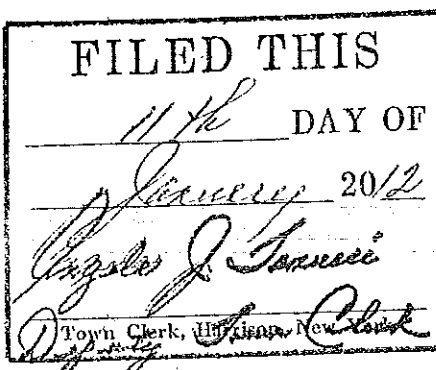 FILED THIS
11th DAY OF
January 2012
J.
Town Clerk, Harrison, New York
Deputy Town Clerk